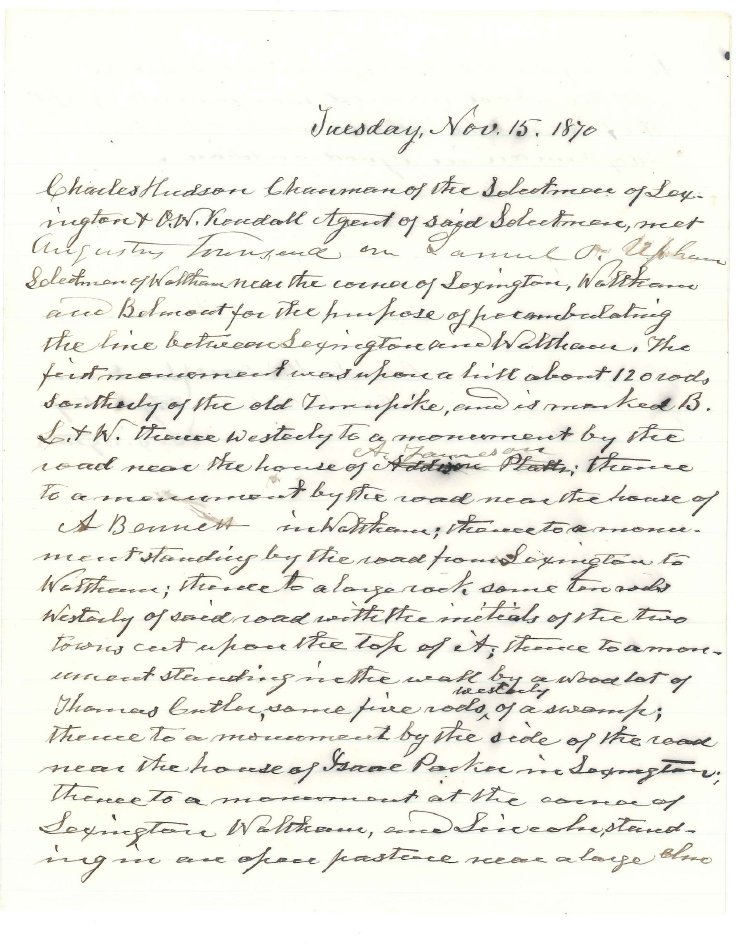 Tuesday, Nov. 15. 1870
Charles Hudson Chairman of the Selectmen of Lex-
ington & O.W. Kendall Agent of said Selectmen, met
Augustus Townsend Samuel O. Upham
Selectmen of Waltham near the corner of Lexington, Waltham
and Belmont for the purpose of perambulating
the line between Lexington and Waltham. The
first monument was upon a hill about 120 rods
southerly of the old Turnpike, and is marked B.
L. & W. thence westerly to a monument by the
A. Jameson
road near the house of Addison Platts; thence
to a monument by the road near the house of
A Bennett in Waltham; thence to a monu-
ment standing by the road from Lexington to
Waltham; thence to a large rock some ten rods
westerly of said road with the initials of the two
towns cut upon the top of it; thence to a mon-
ument standing in the wall by a wood lot of
westerly
Thomas Cutler, some five rods ^ of a swamp;
thence to a monument by the side of the road
near the house of Isaac Parker in Lexington;
thence to a monument at the corner of
Lexington Waltham, and Lincoln, stand-
ing in an open pasture near a large elm